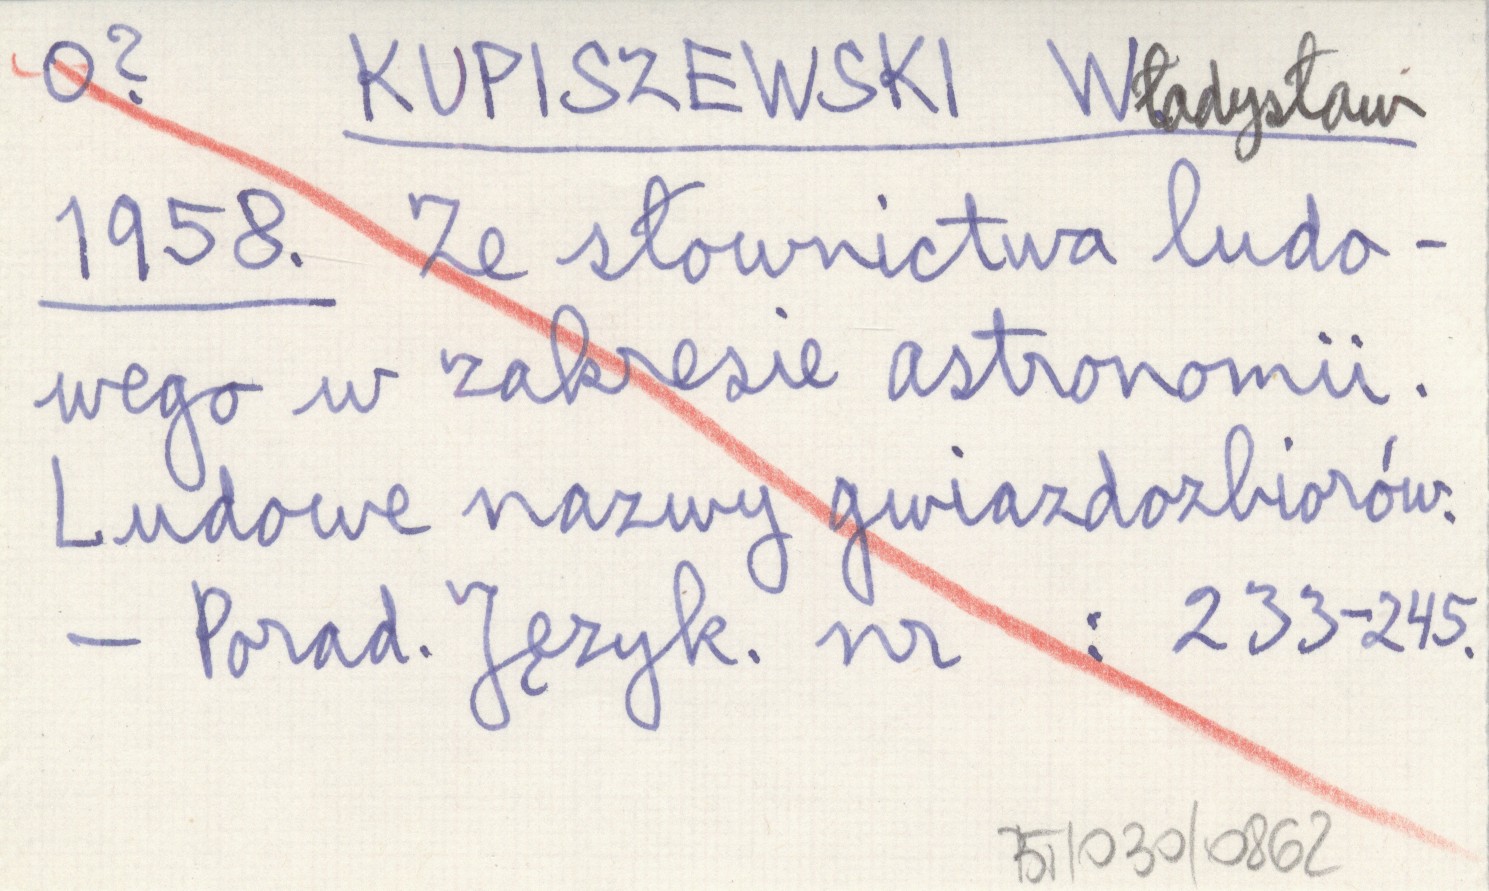 O? KUPISZEWSKI Władysław
1958. Ze słownictwa ludo-
wego w zakresie astronomii.
Ludowe nazwy gwiazdozbiorów.
— Porad. Język. nr : 233-245.
/030/0862